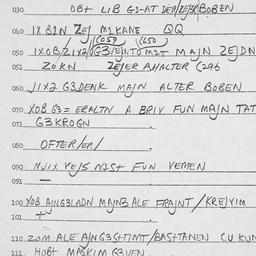 030 OBT LIB G1-AT DER/ZEJB/BOBEN
040 IX B1N ZEJ M1KANE QQ
(059) (050)
050 IXOB/21X2/G3/EJNTOM1T MAJN ZEJDN
051 ZOKN ZEJER AHALTER
060 J1X2 G3DENK MAJN ALTER BOBEN
070 XOB G3= ERALTN A BRIV FUN MAJN TAT
071 G3KROGN
080 OFTER/ER/
090 NJIX VEJS N1ST FUN VEMEN
091 —
100 XOB AJNG3LADN MAJN3 ALE FRAJNT/KREJVIM
101 +
110 ZOM ALE AJNG3STIMT/BASHTANEN CU KUN
111 HOBT MASKIM G3VEN